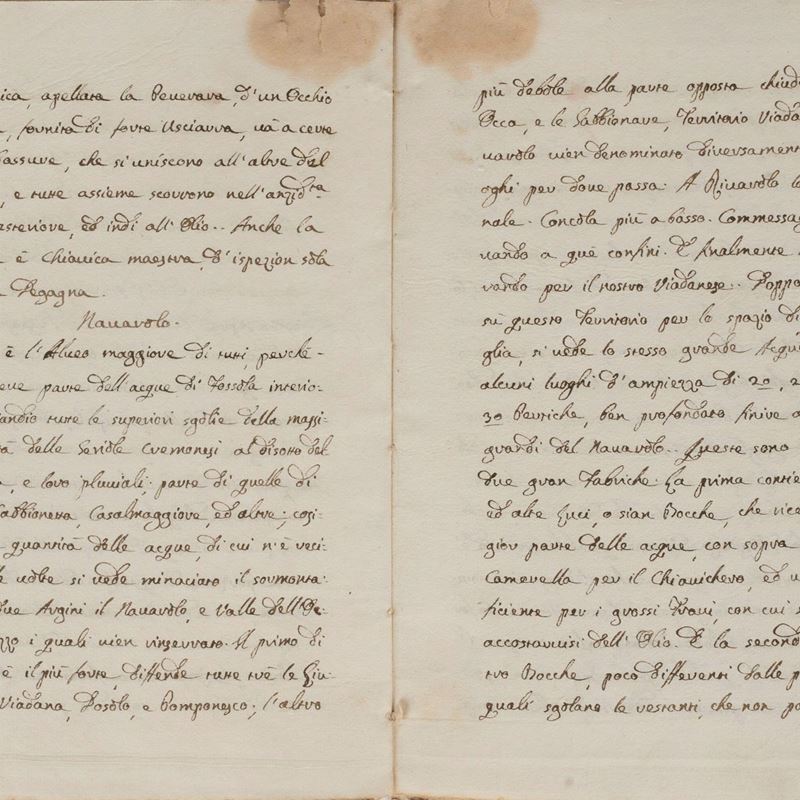 ica, apellata la Peverara, d'un Occhio
, fornita di forte Usciarra, và a certe
bassure, che si uniscono all' altre dal
, e tute assieme scorrono nell'anzid.ta
steriore, ed indi all' Olio.. Anche la
è Chiavica maestra, d' ispezion sola
Pegagna.
Navarolo.
è l'Alveo maggiore di tuti, perchè -
eve parte dell' acque di Fossola interio-
andio tute le superiori sgolie della massi:
tà delle Seriole Cremonesi al disotto del
, e loro pluviali; parte di quelle di
abbioneta, Casalmaggiore, ed altre; cosi-
quantità delle acque, di cui n'è reci-
e volte si vede minaciato il sormonta-
due Argini il Navarolo, e Valle dell'
zzo i quali vien rinserrato. Il primo di
è il più forte, diffende tute trè le Giu-
Viadana, Dosolo, e Pomponesco; l'altro
più debole alla parte opposta chiud
Occa, e le Sabbionare, Territorio Viada
varolo vien denominato diversament
oghi per dove passa. A Rivarolo le
nale. Concola più a basso. Commessag
vardo a què confini. E finalmente
varolo per il nostro Viadanese. Doppo
sù questo Territorio per lo spazio di
glia, si vede lo stesso grande Acque
alcuni luoghi d'ampiezza di 20, 2
30 Pertiche, ben profondato finire a
grandi del Navarolo.. Queste sono
due gran Fabriche. La prima contie
ed alte Luci, o sian Bocche, che rice
gior parte delle acque, con sopra
Camerella per il Chiavichero, ed
ficiente per i grossi Travi, con cui s
accostarvisi dell' Olio. E la second
tro Bocche, poco differenti dalle p
quali sgolano le restanti, che non po